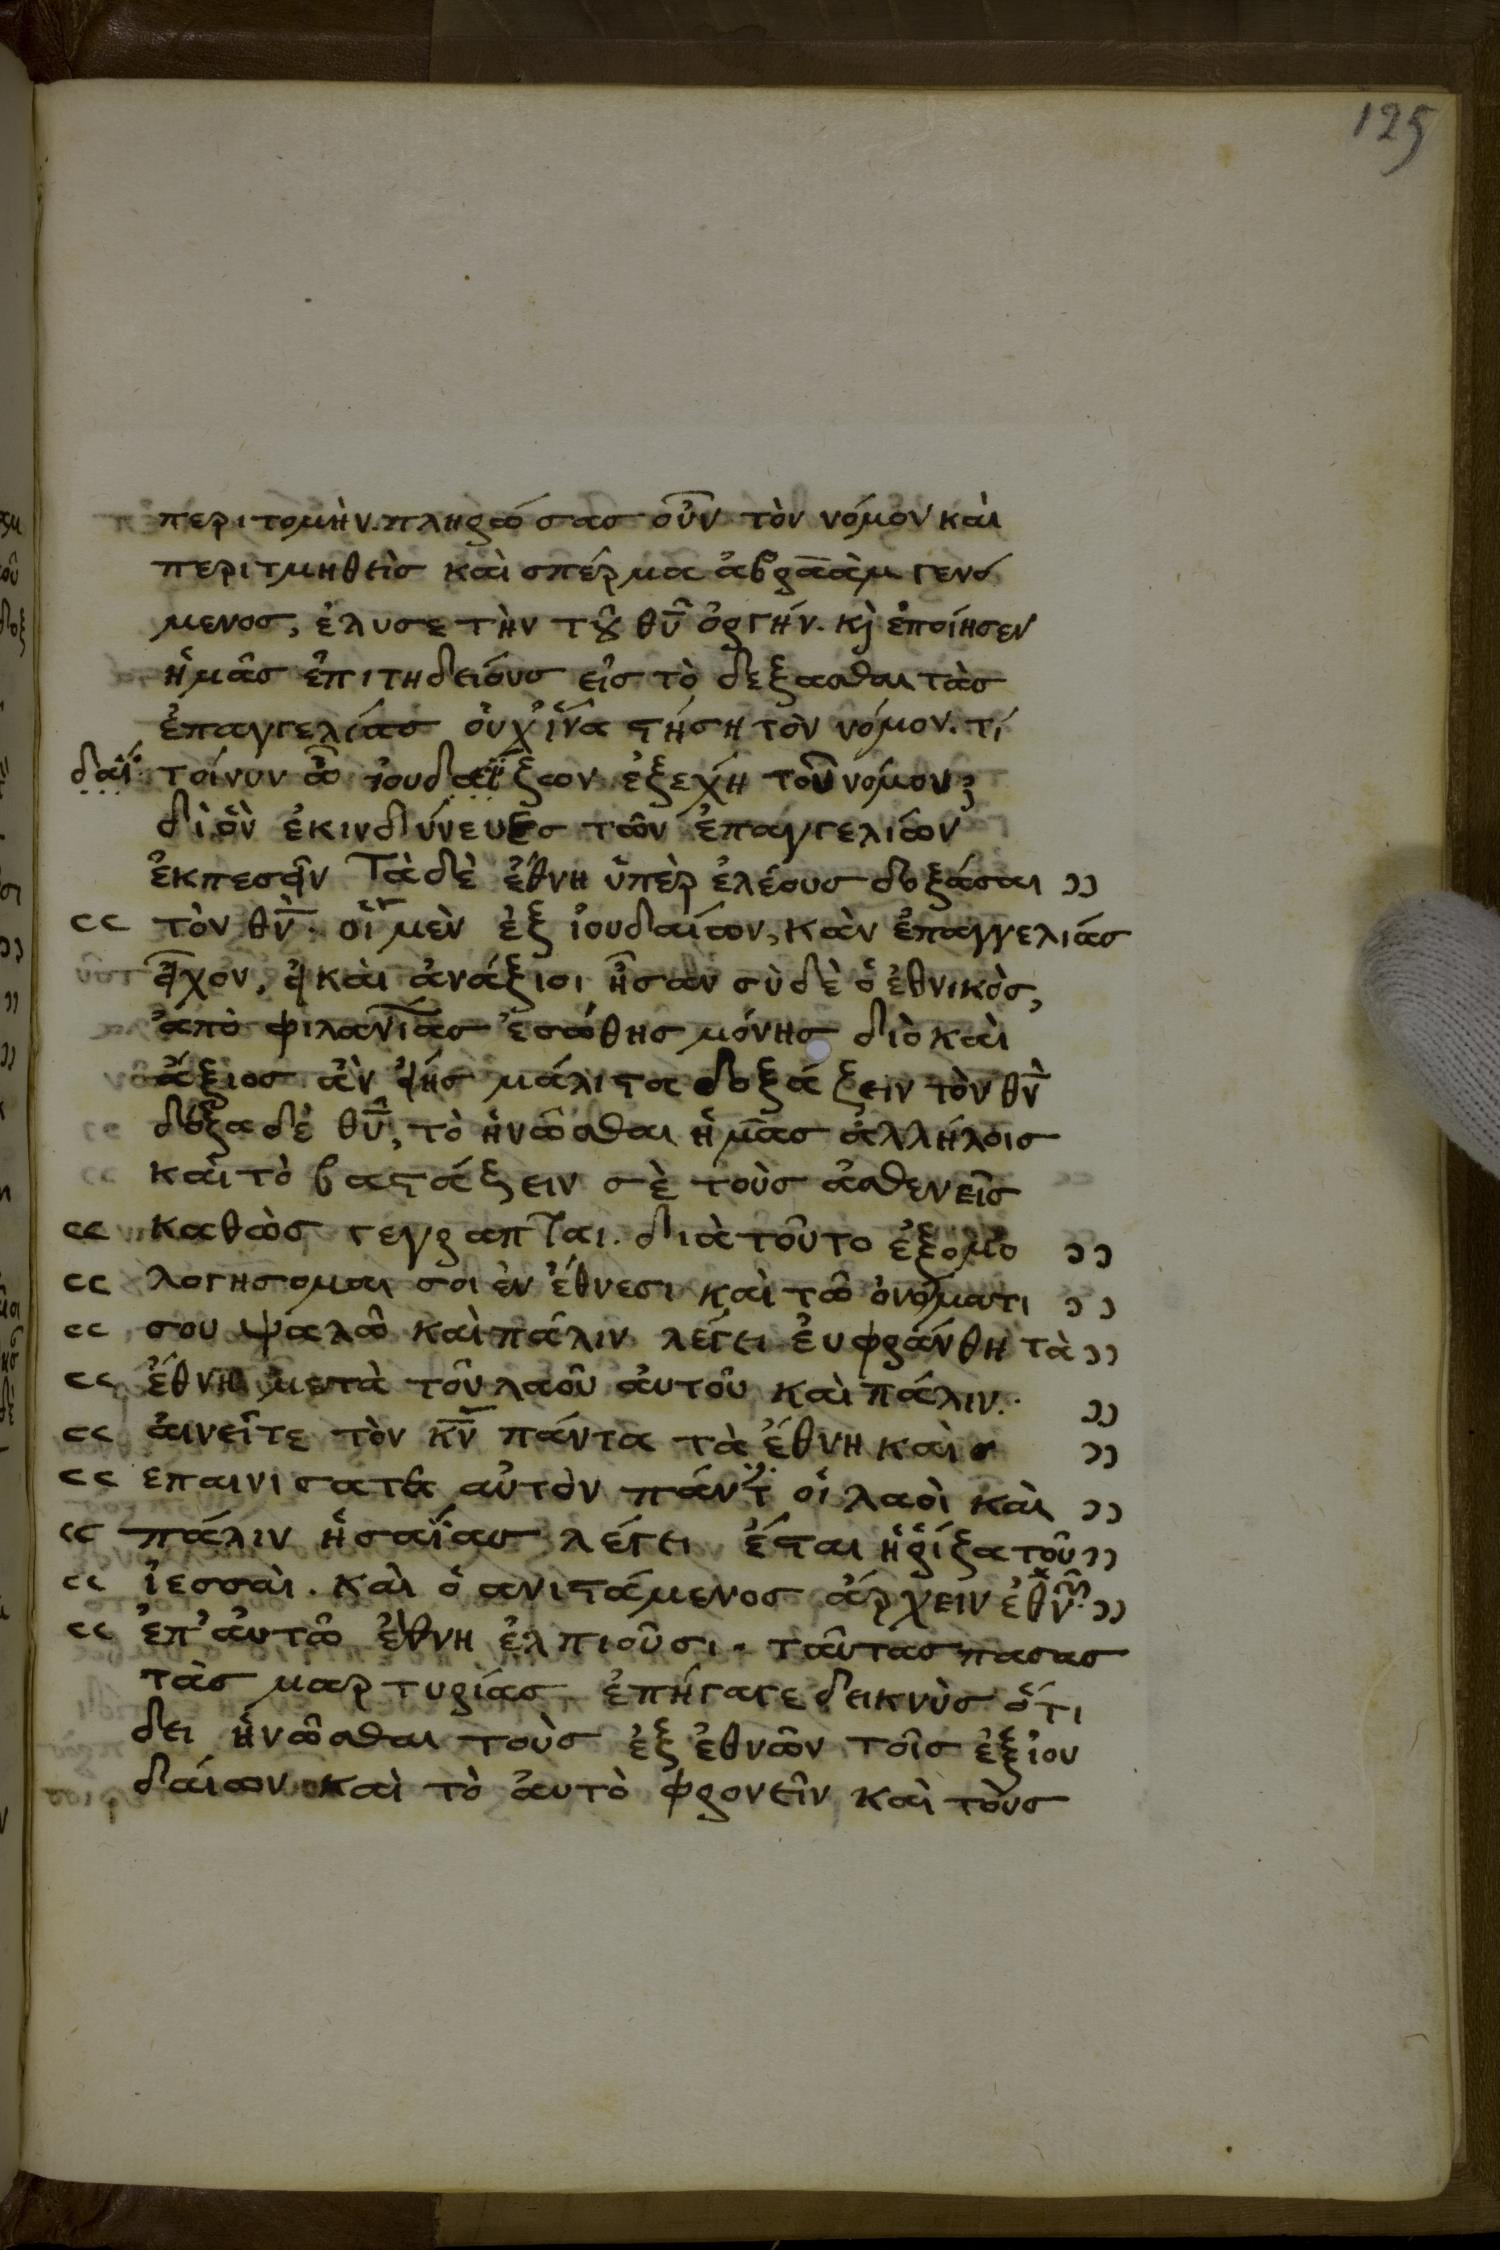 125
περιτομὴν. πληρώσας οὖν τὸν νόμον καὶ
περιτμηθεὶς καὶ σπέρμα ἀβραὰμ γενό
μενος, ἔλυσε τὴν τοῦ θῦ ὀργήν. κὶ ἐποίησεν
ἡμᾶς ἐπιτηδείους εἰς τὸ δέξασθαι τὰς
ἐπαγγελίας οὐχ ἵνα στήση τὸν νόμον. τί
δαΐ τοίνυν ὦ ἰουδαΐζων ἐξέχη τοῦ νόμου;
δι ὃν ἐκινδύνευες τῶν ἐπαγγελιῶν
ἐκπεσεῖν Τὰ δὲ ἔθνη ὑπὲρ ἐλέους δοξάσαι ))
(( τὸν θν̄. οἱ μὲν ἐξ ἰουδαίων, κἂν ἐπαγγελίας
εἶχον, εἰ καὶ ἀνάξιοι ἦσαν σὺ δὲ ὁ ἐθνικὸς,
ἀπὸ φιλανίας ἐσώθης μόνης διὸ καὶ
ἄξιος ἂν εἴης μάλιστα δοξάζειν τὸν θν̄
δόξα δὲ θῦ, τὸ ἡνῶσθαι ἡμᾶς ἀλλήλοις
καὶ τὸ βαστάζειν σὲ τοὺς ἀσθενεῖς
(( καθὼς γέγραπται. διὰ τοῦτο ἐξομο ))
(( λογήσομαι σοι ἐν ἔθνεσι καὶ τῶ ὀνόματι ))
(( σου ψαλῶ καὶ πάλιν λέγει ἐυφράνθη τὰ ))
(( ἔθνη μετὰ τοῦ λαοῦ ἀυτοῦ καὶ πάλιν. ))
(( ἀινεῖτε τὸν κν̄ πάντα τὰ ἔθνη καὶ ))
(( επαινισατε αὐτὸν πάντ οἱ λαοὶ καὶ ))
(( πάλιν ἡσαΐας λέγει ἔσται ἡ ῥίζα τοῦ ))
(( ἰεσσαὶ. καὶ ὁ ανιστάμενος ἄρχειν ἐθν ))
(( ἐπ' ἀυτῶ ἔθνη ἐλπιοῦσι. ταῦτας πασας
τὰς μαρτυρίας ἐπήγαγε δεικνὺς ὅτι
δει ἡνῶσθαι τοὺς ἐξ ἐθνῶν τοῖς ἐξ ἰου
δαίων καὶ τὸ ἀυτὸ φρονεῖν καὶ τοὺς